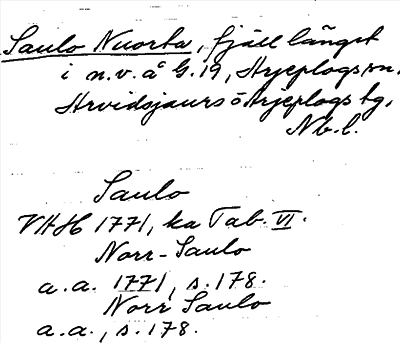 Saulo Nuorta, fjäll längst
i n.v. å G.19, Arjeplogs sn.
Arvidsjaurs o Arjeplogs tg,
Nb. l.
Saulo
VHH 1771, ka Tab. VI.
Norr-Saulo
a.a. 1771, s. 178.
Norr Saulo
a.a., s. 178.